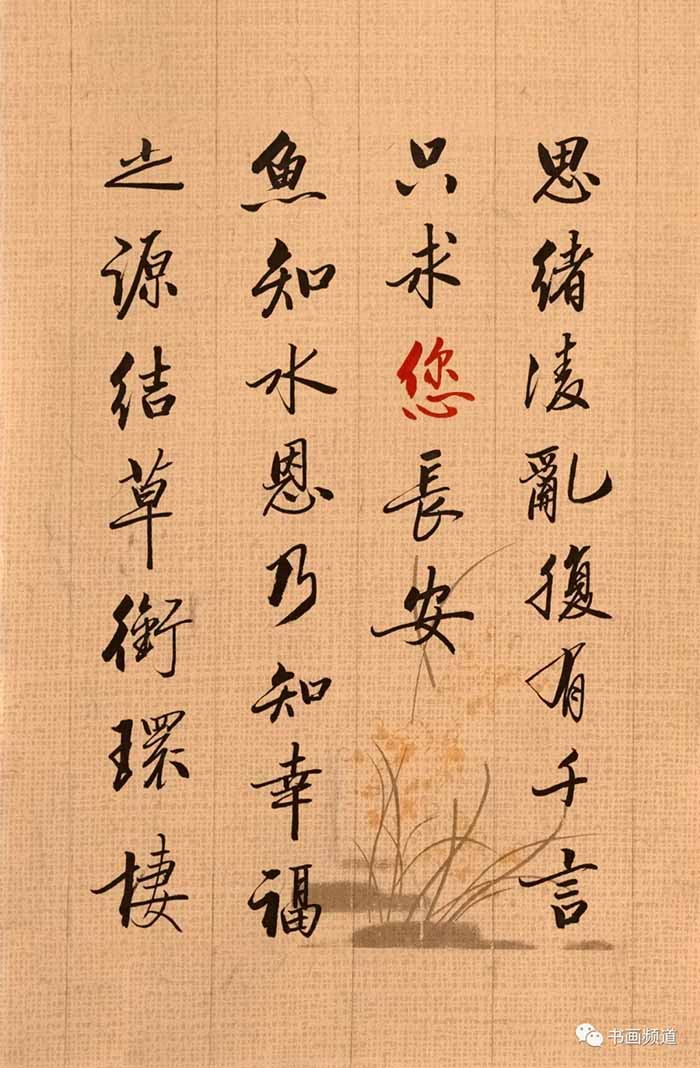 思緒凌亂腹有千言
只求您長安
魚知水恩乃知幸福
之源結草銜環棲
书画频道